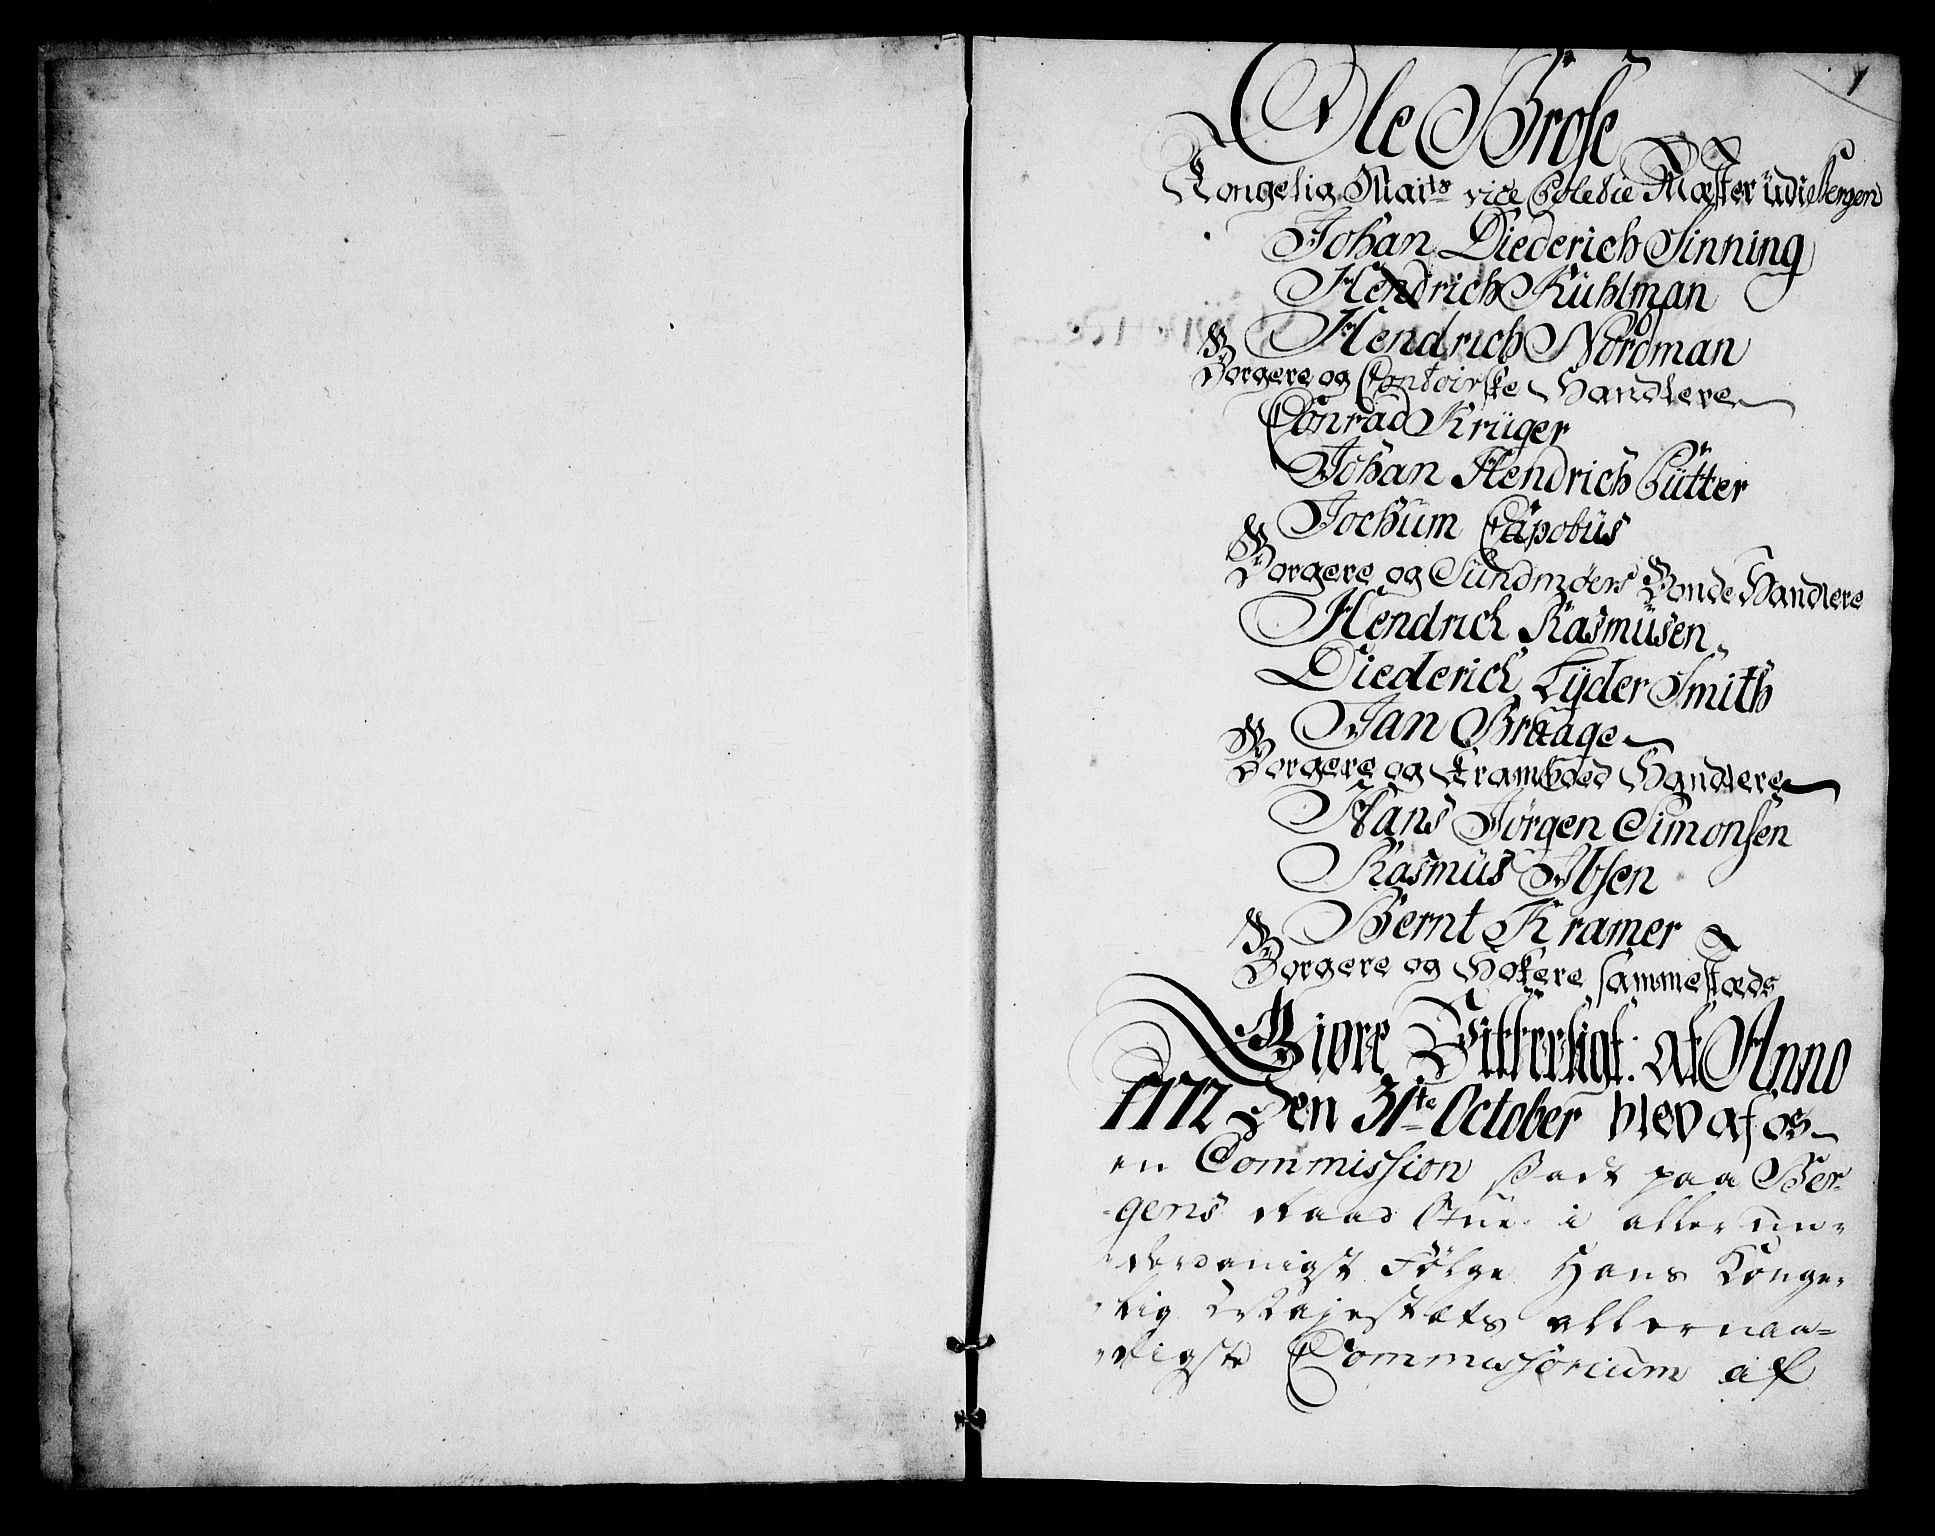 1
Ole Brose
Kongelig Maits vice Poletie Mæster udi Bergen
Johan Diederich Sinning
Hendrich Kuhlman
Hendrich Nordman
Borgere og Contoirske Handlere
Conrad Krüger
Johan Hendrich Bütter
Jochum Capobus
Borgere og Sundmøers Bonde Handlere
Hendrich Rasmüsen
Diederich Lyder Smith
Jan Braage
Borgere og Kramboed Handlere
Hans Jørgen Simonsen
Rasmus Ibsen
Bernt Kramer
Borgere og Høkere sammestæds
Giøre Vitterligt: at Anno
1772 Den 31te October blev af os
en Commission sadt paa Ber-
gens Raad Stue i aller un-
derdanigst Følge Hans Konge-
lig Majestæts allernaa-
digste Commissorium af